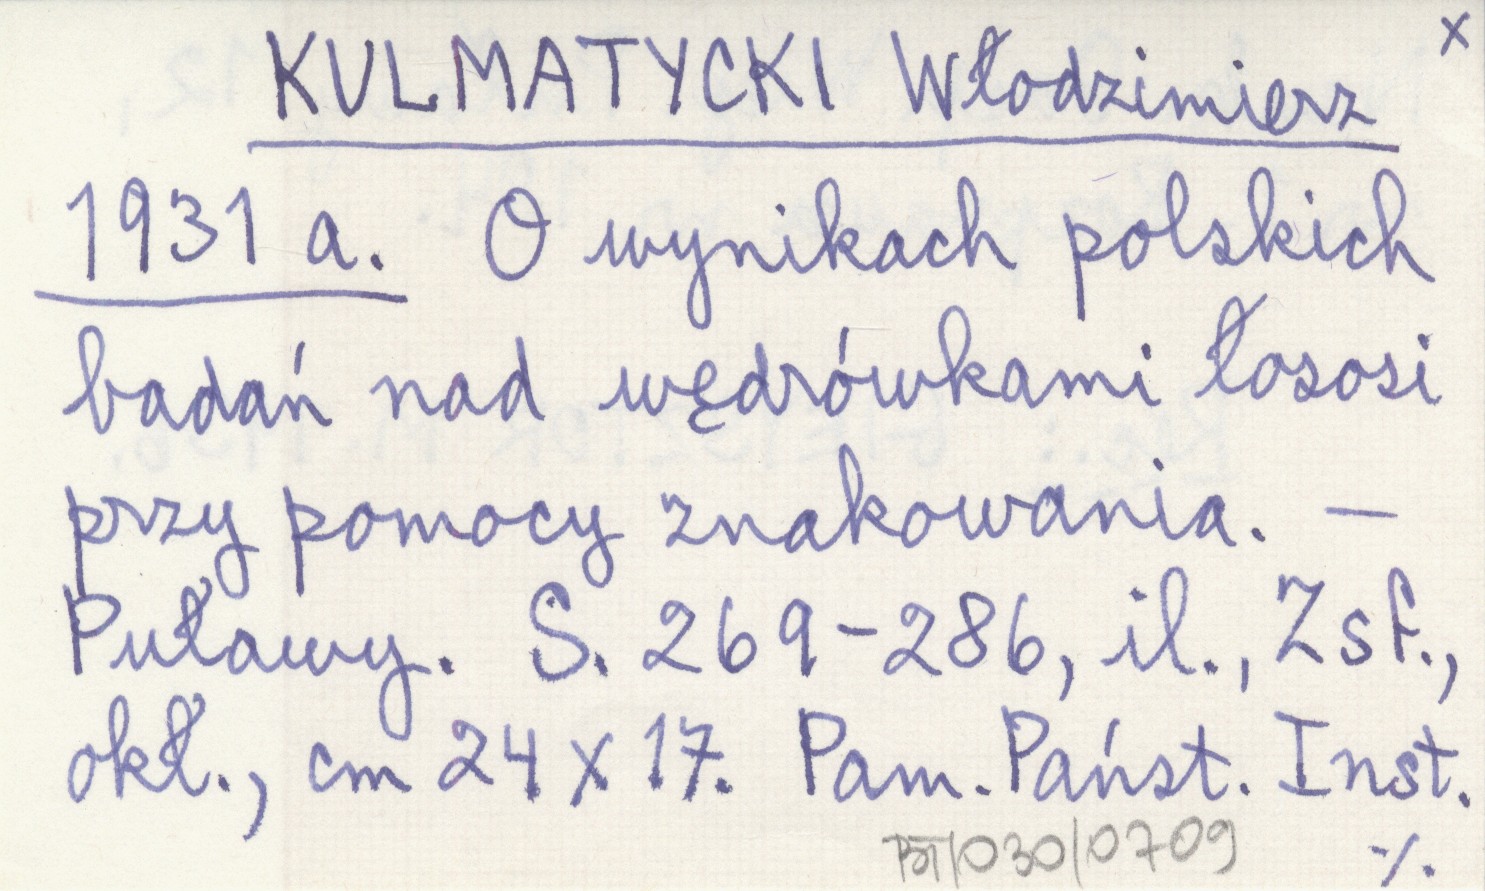 x
KULMATYCKI Włodzimierz
1931 a. O wynikach polskich
badań nad wędrówkami łososi
przy pomocy znakowania. —
Puławy. S. 269-286, il., Zsf.,
okł., cm 24 x 17. Pam. Państ. Inst.
BT/030/0709
./.